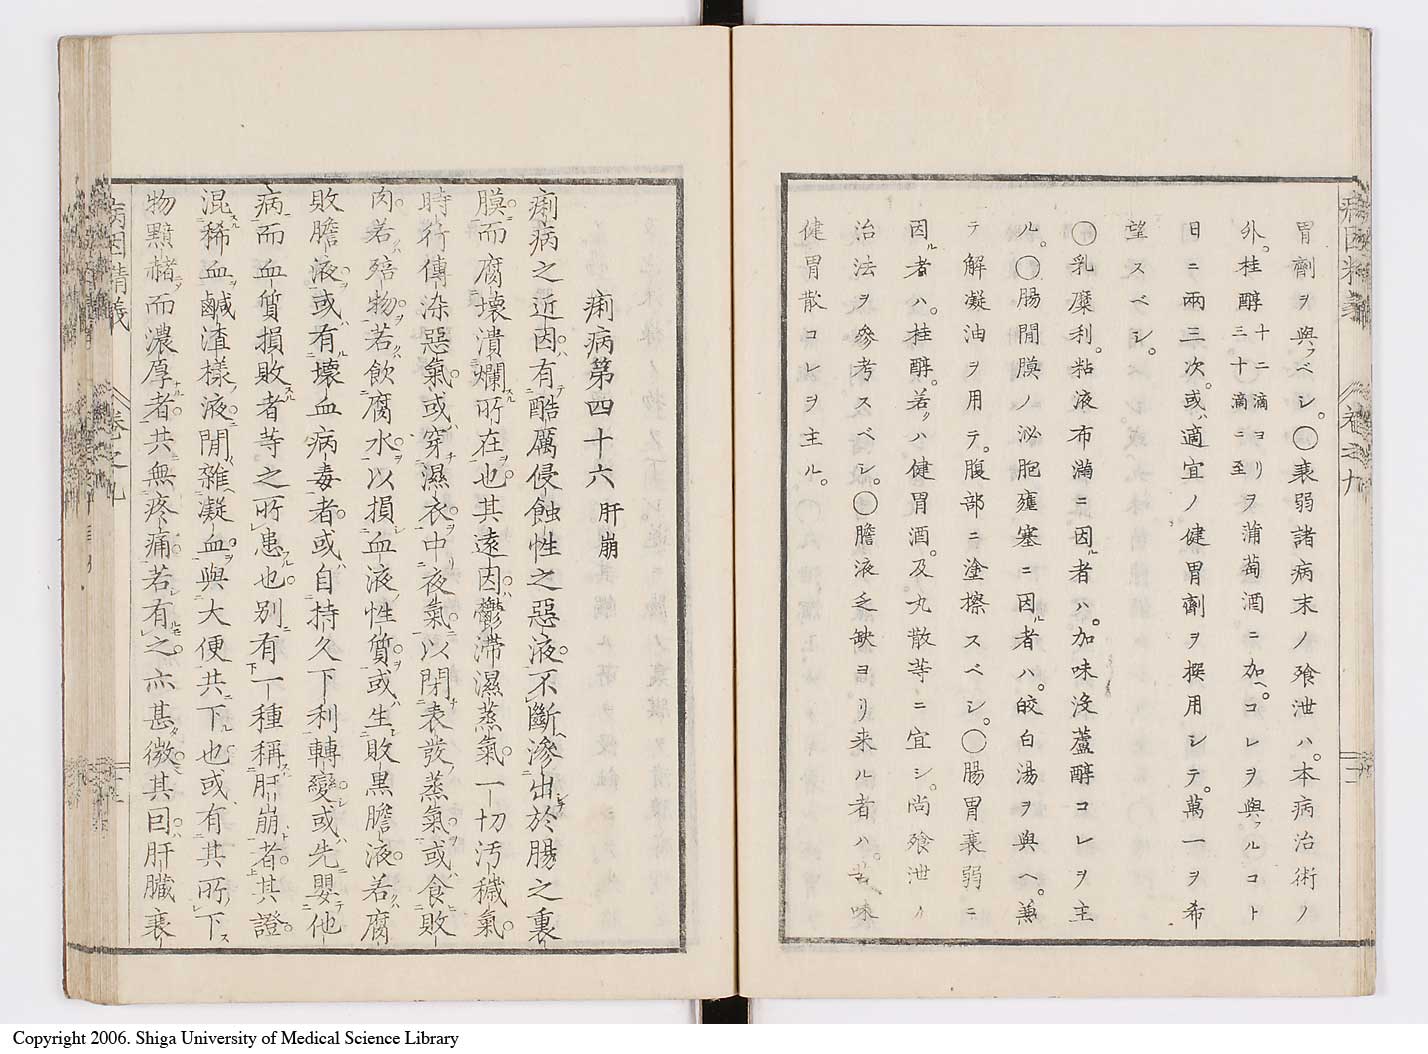 胃劑ヲ與フベシ。○衰弱諸病末ノ飧泄ハ。本病治術ノ
外。桂醇十二滴ヨリ三十滴ニ至ヲ蒲萄酒ニ加ヘ。コレヲ與フルコト
日ニ兩三次。或ハ適宜ノ健胃劑ヲ撰用シテ。萬一ヲ希
望スベシ。
○乳糜利。粘液布滿ニ因ル者ハ。加味浸蘆醇コレヲ主
ル。○腸間膜ノ泌胞壅塞ニ因ル者ハ。皎白湯ヲ與ヘ。兼
テ解凝油ヲ用テ。腹部ニ塗擦スベシ。○腸胃衰弱ニ
因ル者ハ。桂醇。若クハ健胃酒。及丸散等ニ宜シ。尚飧泄ノ
治法ヲ參考スベシ。○膽液乏缺ヨリ来ル者ハ。苦味
健胃散コレヲ主ル。
病因精義 卷之九
痢病第四十六 肝崩
痢病之近因有酷厲侵蝕性之惡液不斷滲出於腸之裏
膜而腐壞潰爛所在也其遠因鬱滞濕蒸氣一切汚穢氣
時行傳染惡氣或穿濕衣中夜氣以閉表發蒸氣或食敗
肉若殕物若飲腐水以損血液性質或生敗黒膽液若腐
敗膽液或有壞血病毒者或自持久下利轉變或先嬰他
病而血質損敗者等之所患也別有一種稱肝崩者其證
混稀血鹹渣樣液間雜凝血與大便共下也或有其所下
物黯赭而濃厚者共無疼痛若有之亦甚微其因肝臓衰
病因精義 卷之九
Copyright 2006. Shiga University of Medical Science Library